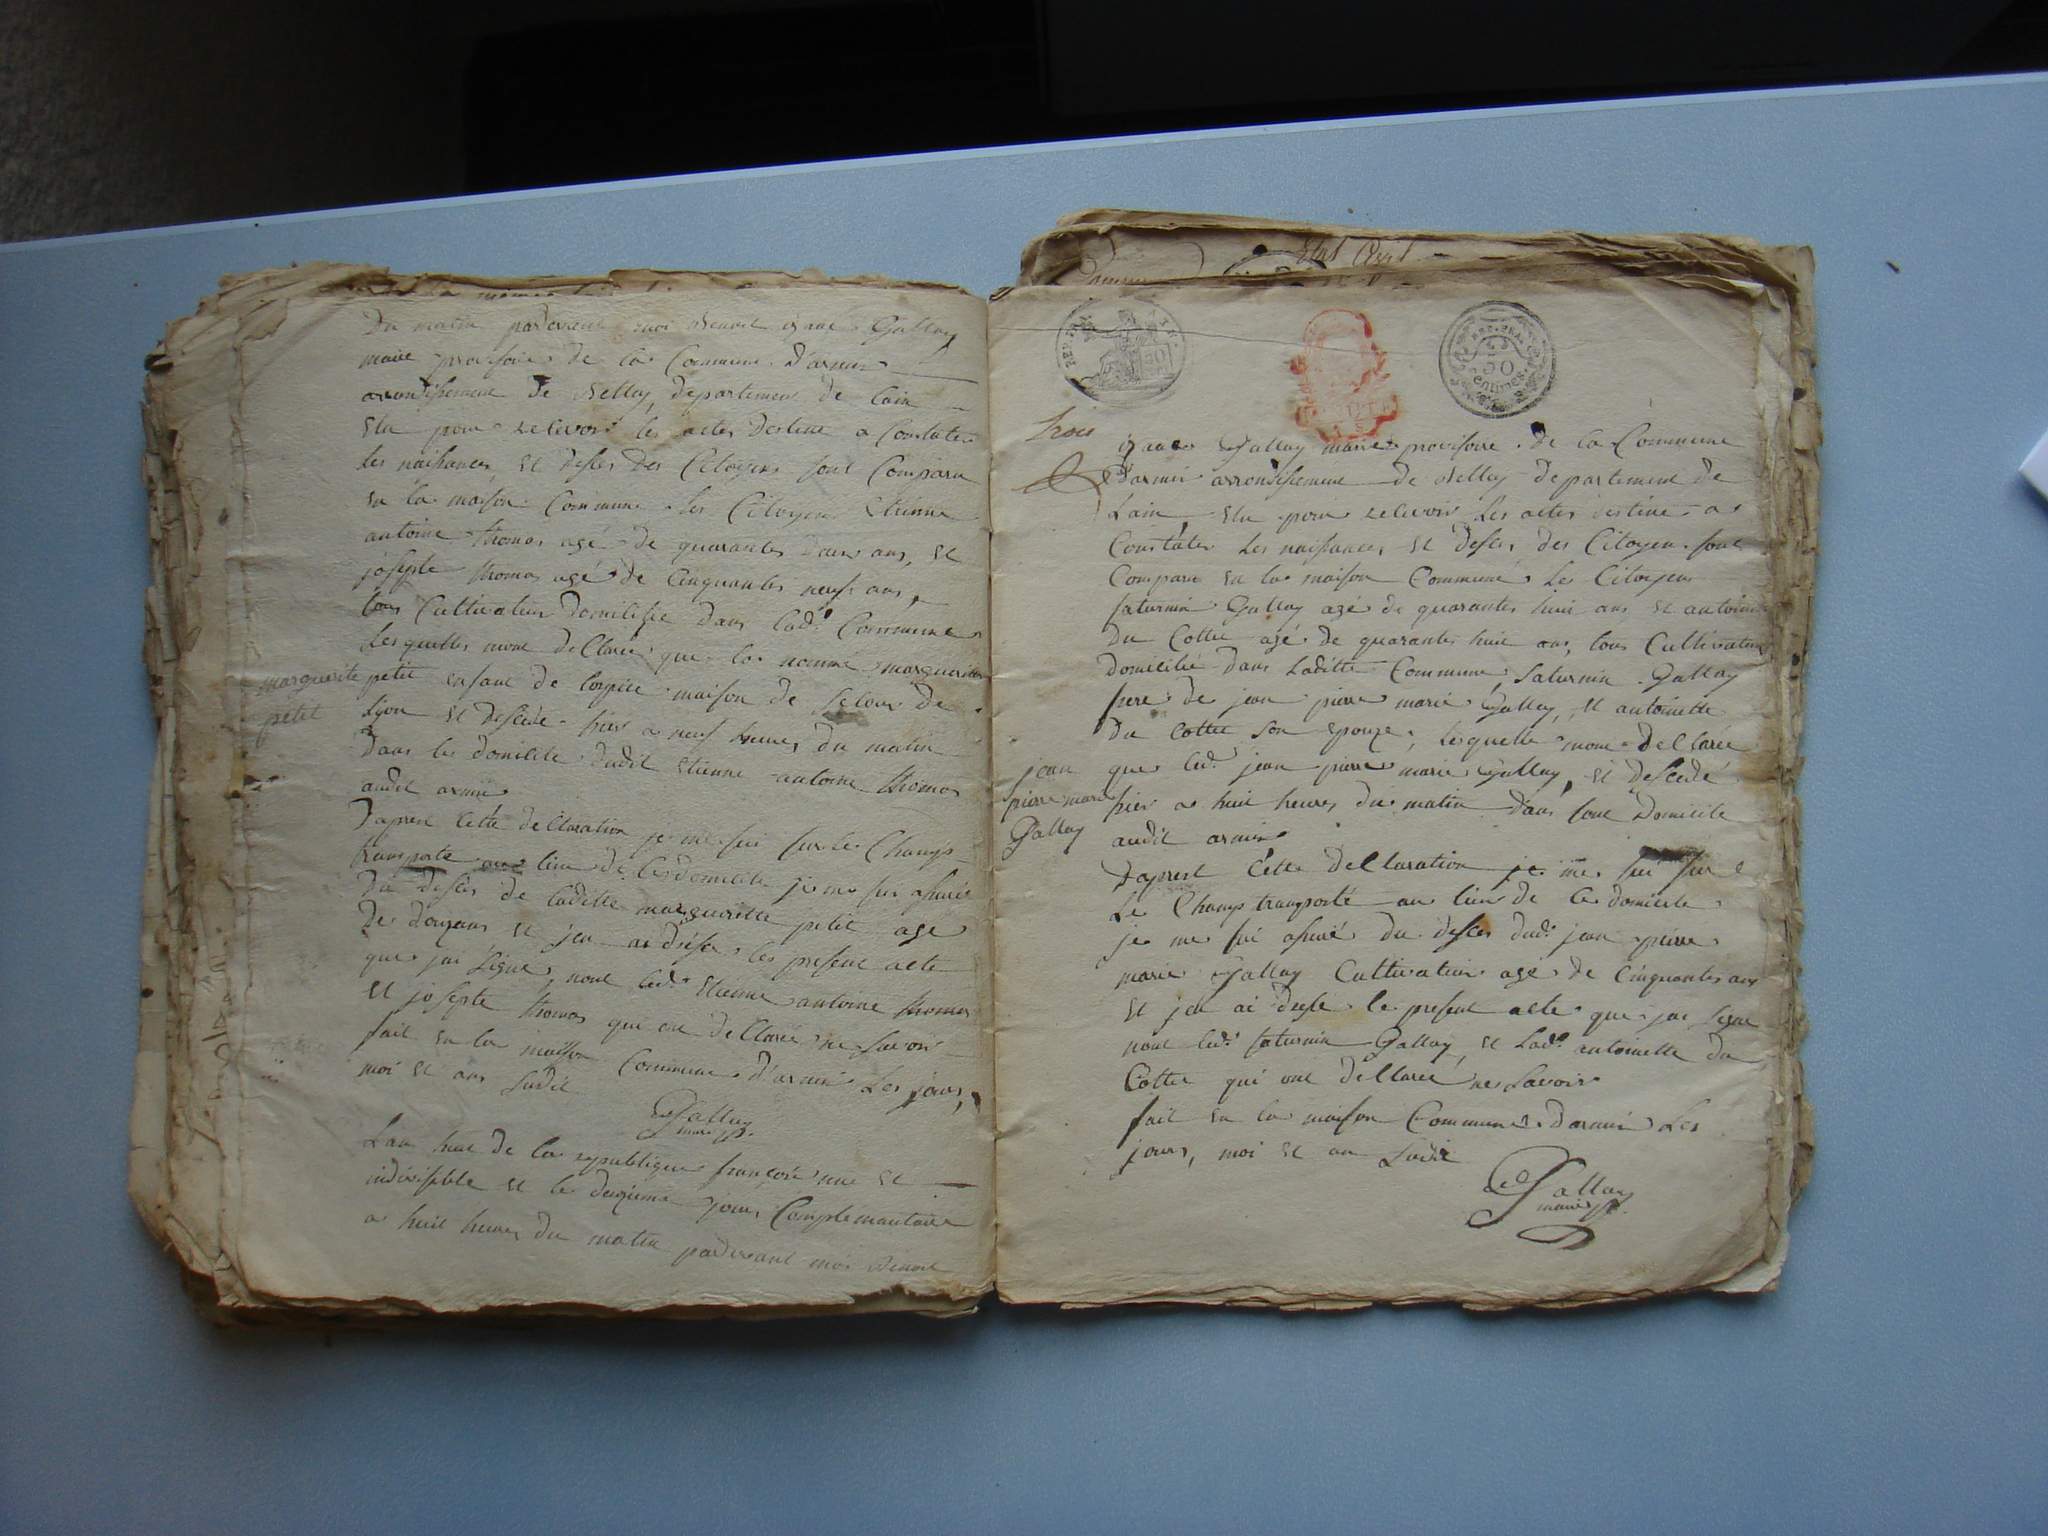 Du matin pardevant moi Benoit isaac Gallay
maire provisoire de la Commune d'armix
arrondissement de Belley, departement de Lain
Elu pour recevoir les actes destine a Constater
les naissances et desces des Citoyens sont Comparu
en la maison Commune les Citoyen Etienne
antoine thomas agé de quarantes deux ans, et
josepte thomas agé de Cinquantes neuf ans,
tous Cultivateur domicilie dans lad. Commune
Lesquelles mont dellaré que la nommé marguerite
marguerite
petit
petit enfant de lospice maison de secour de
Lyon et descede hier a neuf heures du matin
dans le domicile dudit etienne antoine thomas
audit armix
Daprest Cette dellaration je me sui sur le Champ
transporté au lieu de Ce domicile je me sui assuré
du desces de laditte marguerite petit age
de douzans et jen ai dressé les present acte
que jai signé, nont led. etienne antoine thomas
et josepte thomas qui ont dellaré ne savoir
fait en la maison Commune d'armix Les jours,
moi et ans Sudit
Gallay
maire
Lan huit de la republique françoise une et
indivisible et le deuzieme jour Complemantaire
a huit heures du matin pardevant moi Benoit
Etat Civil
REP. FRA.
50
centimes
trois
isaac Gallay maire provisoire de la Commune
D'armix arrondissement de Belley departement de
Lain, Elu pour recevoir Les actes destine a
Constater Les naissances et desces des Citoyen sont
Comparu en la maison Commune Les Citoyen
saturnin Gallay agé de quarantes huit ans, et antoine
Du Cottet agé de quarantes huit ans, tous Cultivateur
Domicilié dans Laditte Commune, saturnin Gallay
frere de jean pierre marie Gallay, et antoinette
Du Cottet son epouze, lesquelle mont dellaré
jean
pierre marie
Gallay
que led. jean pierre marie Gallay, et descedé
hier a huit heures du matin dans sont Domicile
audit armix
daprest Cette dellaration je me sui sur
Le Champ transporté au lieu de Ce domicile
je me sui assuré du desces dud. jean pierre
marie Gallay Cultivateur agé de Cinquantes ans
et jen ai dressé le present acte que jai signé
nont led. saturnin Gallay, et Lad. antoinette du
Cottet qui ont dellaré ne savoir
fait en la maison Commune d'armix Les
jours, moi et an Sudit
Gallay
maire